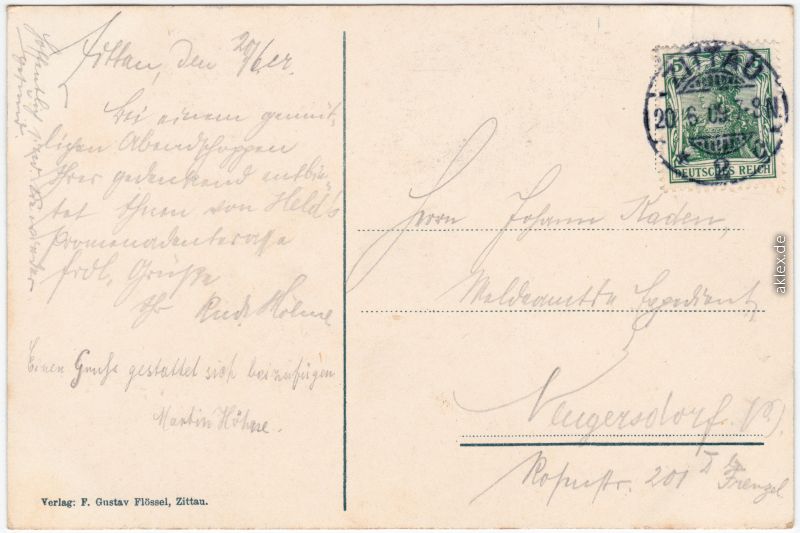 Zittau, den 20/6.09.
Bei einem gemüt-
lichen Abendschoppen
Ihrer gedenkend entbie-
tet Ihnen von Held's
Promenadenterasse
frdl. Grüße
Ihr Rud. Höhne
Einen Gruss gestattet sich beizufügen
Martin Höhne.
Verlag: F. Gustav Flössel, Zittau.
ZITTAU
20.6.09. 8N
* 2 c
5 5
DEUTSCHES REICH
Herrn Johann Kaden,
Meldeamts Expedient,
Neugersdorf i/S.
201 I b. Frenzel
aklex.de